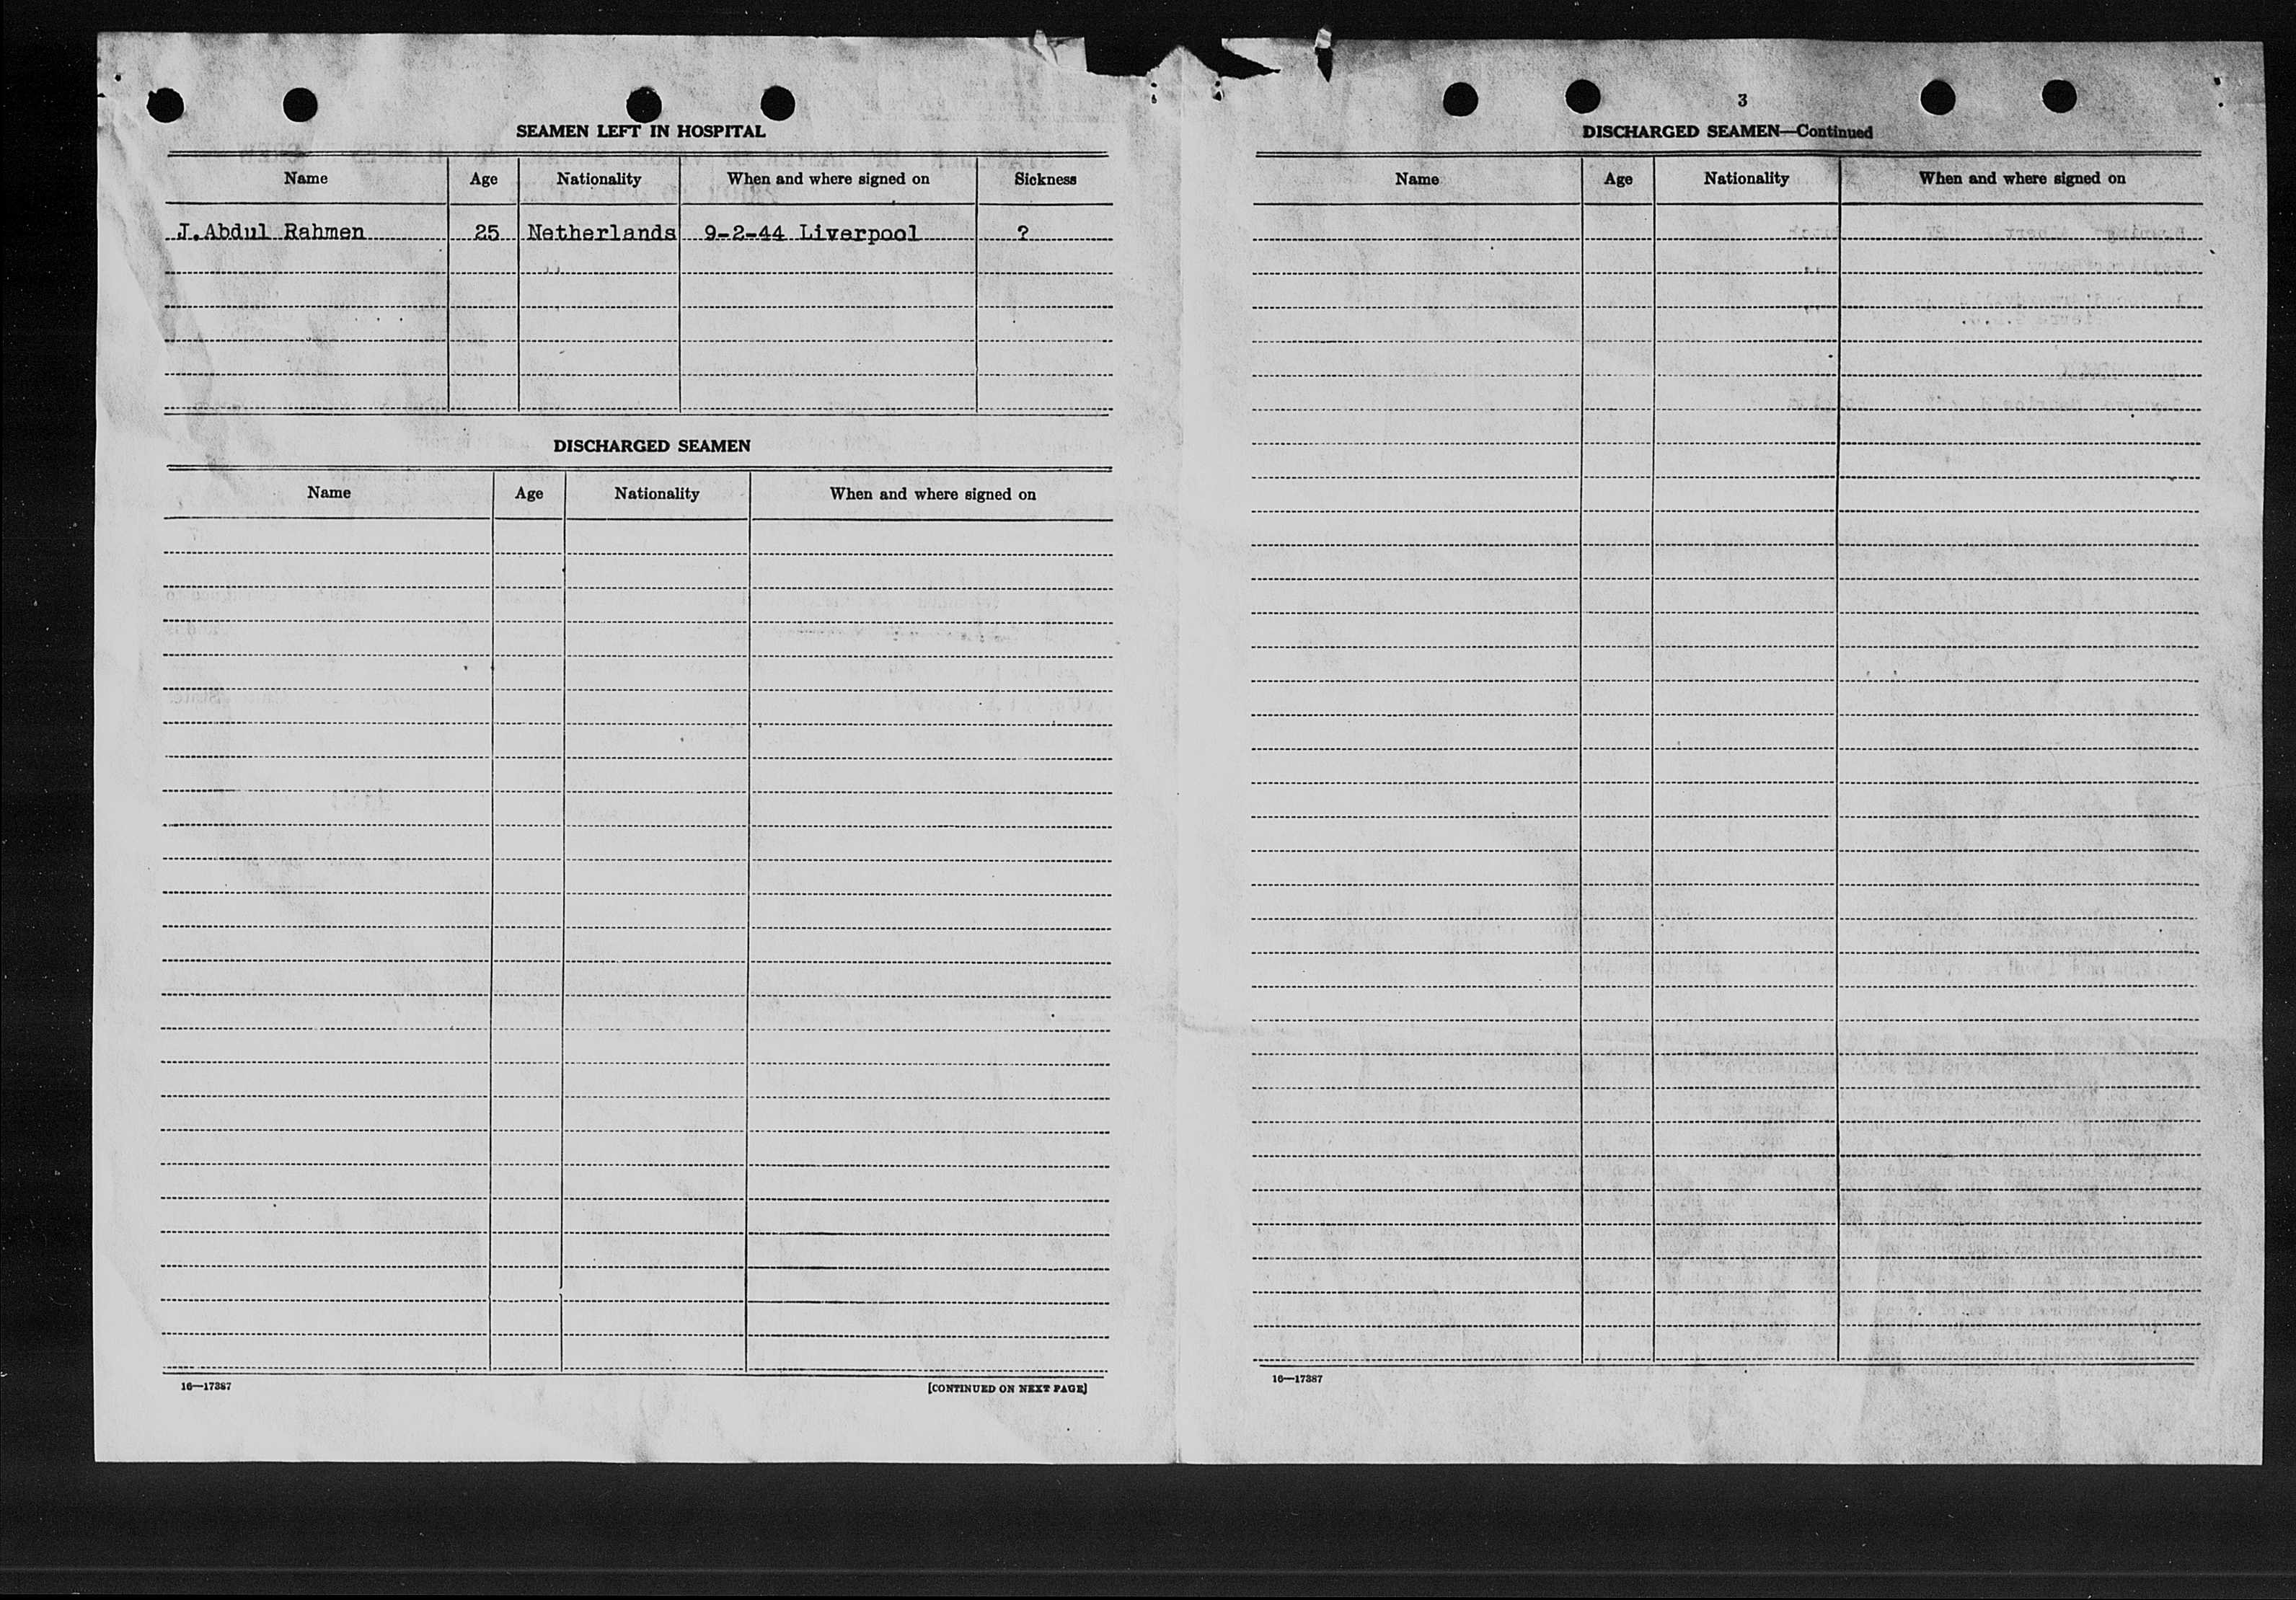 SEAMEN LEFT IN HOSPITAL
Name Age Nationality When and where signed on Sickness
J.Abdul Rahmen 25 Netherlands 9-2-44 Liverpool ?
DISCHARGED SEAMEN
Name Age Nationality When and where signed on
16—17387
[CONTINUED ON NEXT PAGE]
3
DISCHARGED SEAMEN—Continued
Name Age Nationality When and where signed on
16—17387